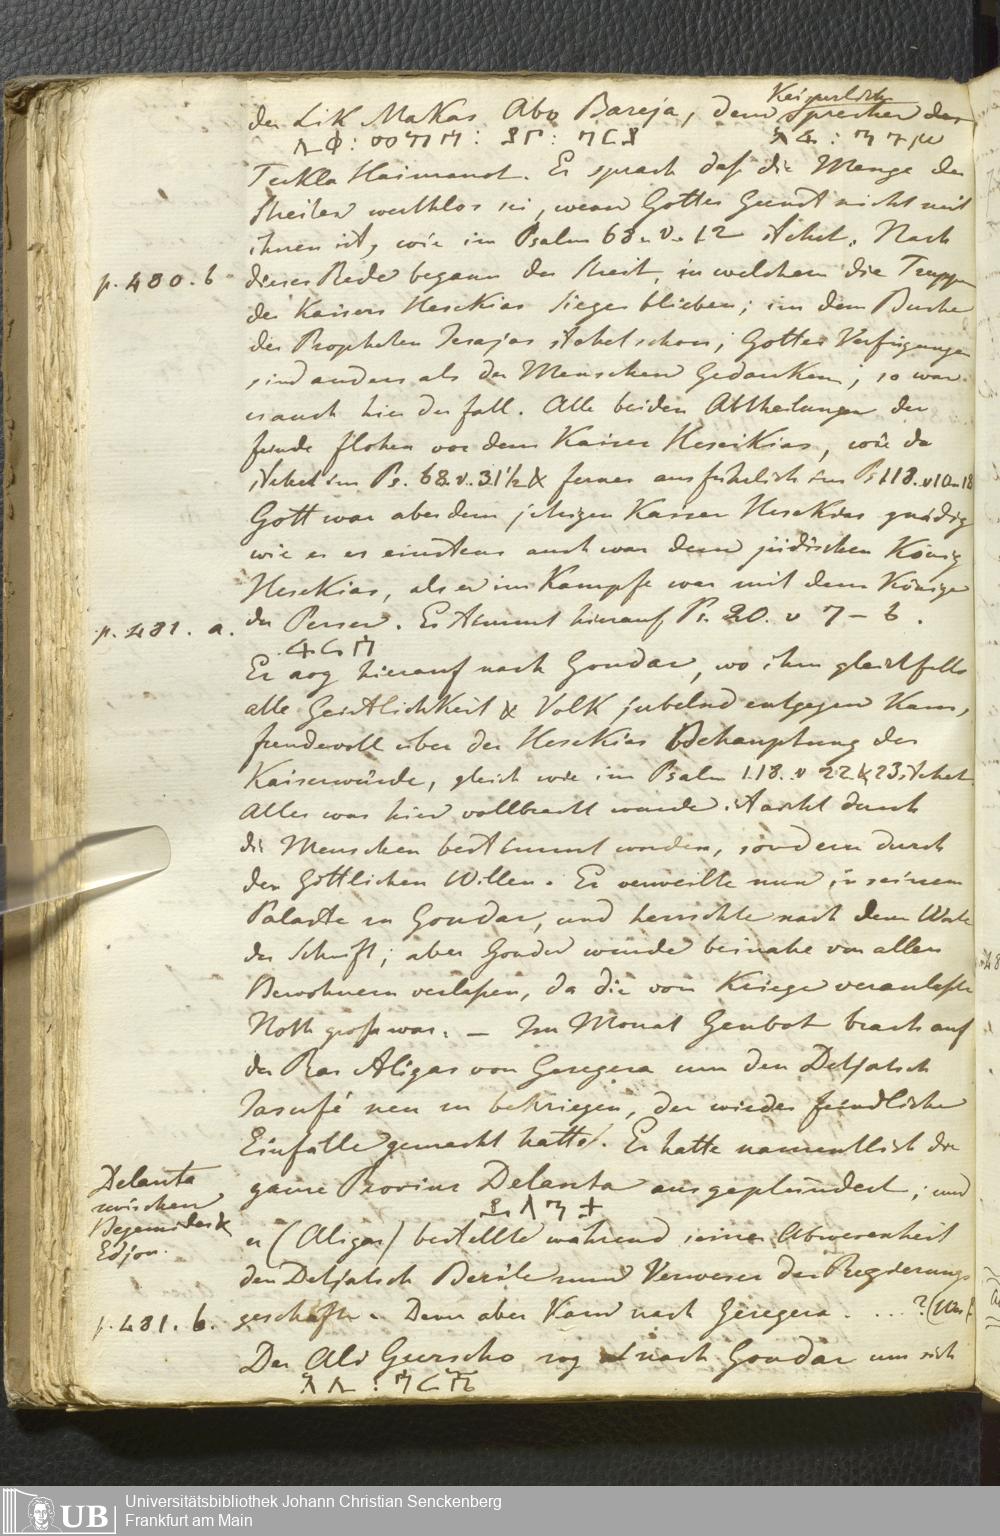 Keiserlich
der Lik MaKas Abo Bareja, dem Sprecher des
ሊቀ: መኳስ: አቦ: ባርያ አፈ: ንጉሥ
Tekla Haimanot. Er sprach daß die Menge der
Streiter werthlos sei, wenn Gottes Gunst nicht mit
ihnen ist, wie im Psalm 68. v. 12 stehet. Nach
p. 480. b dieser Rede begann der Streit, in welchem die Truppen
des Kaisers HeseKias Sieger blieben; in dem Buche
des Propheten Jesajas stehet schon, Gottes Verfügungen
sind anders als der Menschen Gedanken, so war
es auch hier der fall. Alle beiden Abtheilungen der
feinde flohen vor dem Kaiser HeseKias, wie da
stehet im Ps. 68. v. 31½ & ferner ausführlich im Ps 118. v 10-18
Gott war aber dem jetzigen Kaiser HeseKias gnädig
wie er es einstens auch war dem jüdischen König
HeseKias, als er im Kampfe war mit dem Könige
p. 481. a. der Perser. Es stimmt hierauf Ps. 20. v 7 – 8.
ፋርስ
Er zog hierauf nach Gondar, wo ihm gleichfalls
alle Geistlichkeit & Volk jubelnd entgegen Kam,
freudevoll über des HeseKias Behauptung der
Kaiserwürde, gleich wie im Psalm 118. v 22 & 23 stehet
Alles was hier vollbracht wurde ist nicht durch
die Menschen bestimmt worden, sondern durch
den göttlichen Willen. Er verweilte nun in seinem
Palaste zu Gondar, und herrschte nach dem Worte
der Schrift; aber Gondar wurde beinahe von allen
Bewohnern verlaßen, da die vom Kriege veranlaßte
Noth groß war. – Im Monat Genbot brach auf
der Ras Aligas von Geregera um den Detjatsch
Jasufé neu zu bekriegen, der wieder feindliche
Einfälle gemacht hatte. Er hatte namentlich die
Delanta
zwischen
Begemider &
Edjou.
ganze Provinz Delanta ausgeplündert; und
ደላንታ
er (Aligas) bestellte während seiner Abwesenheit
den Detjatsch Berile zum Verweser der Regierungs
p. 481. b. geschäfte. Dann aber Kam nach Geregera . . . ? (
Der Ali Guerscho zog nach Gondar um sich
አሊ: ጓርሾ
Universitätsbibliothek Johann Christian Senckenberg
Frankfurt am Main
UB